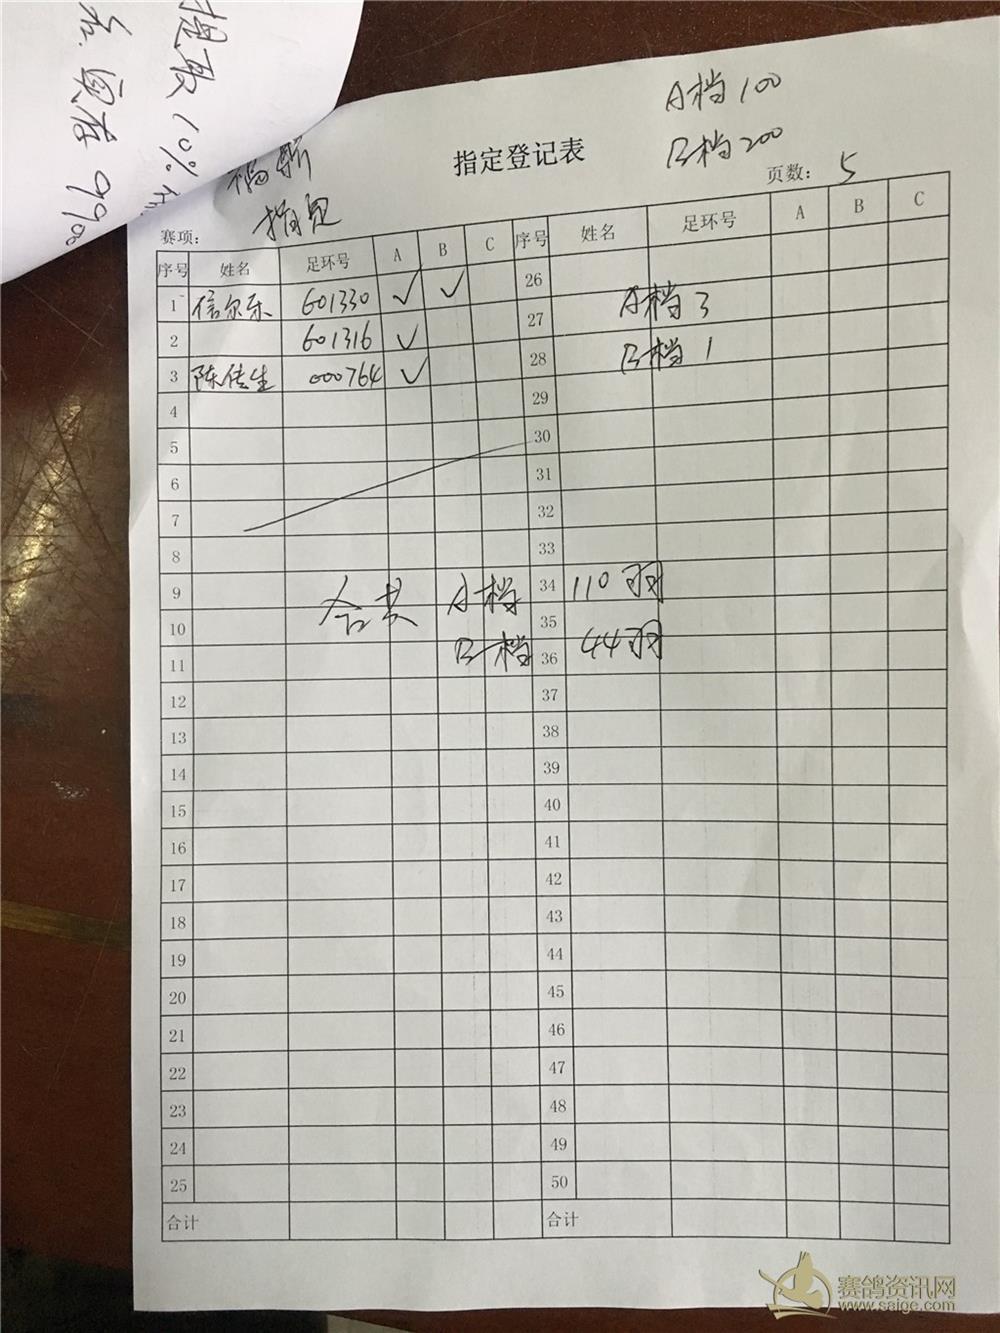 提取10%
现在990
A档100
B档200
指定登记表
页数： 5
指定
赛项：
序号 姓名 足环号 A B C 序号 姓名 足环号 A B C
1 信尔乐 601330 ✓ ✓ 26
2 601316 ✓ 27 A档 3
3 陈传生 000764 ✓ 28 B档 1
4 29
5 30
6 31
7 32
8 33
9 合共 A档 34 110羽
10 35
11 B档 36 44羽
12 37
13 38
14 39
15 40
16 41
17 42
18 43
19 44
20 45
21 46
22 47
23 48
24 49
25 50
合计 合计
赛鸽资讯网
www.saige.com